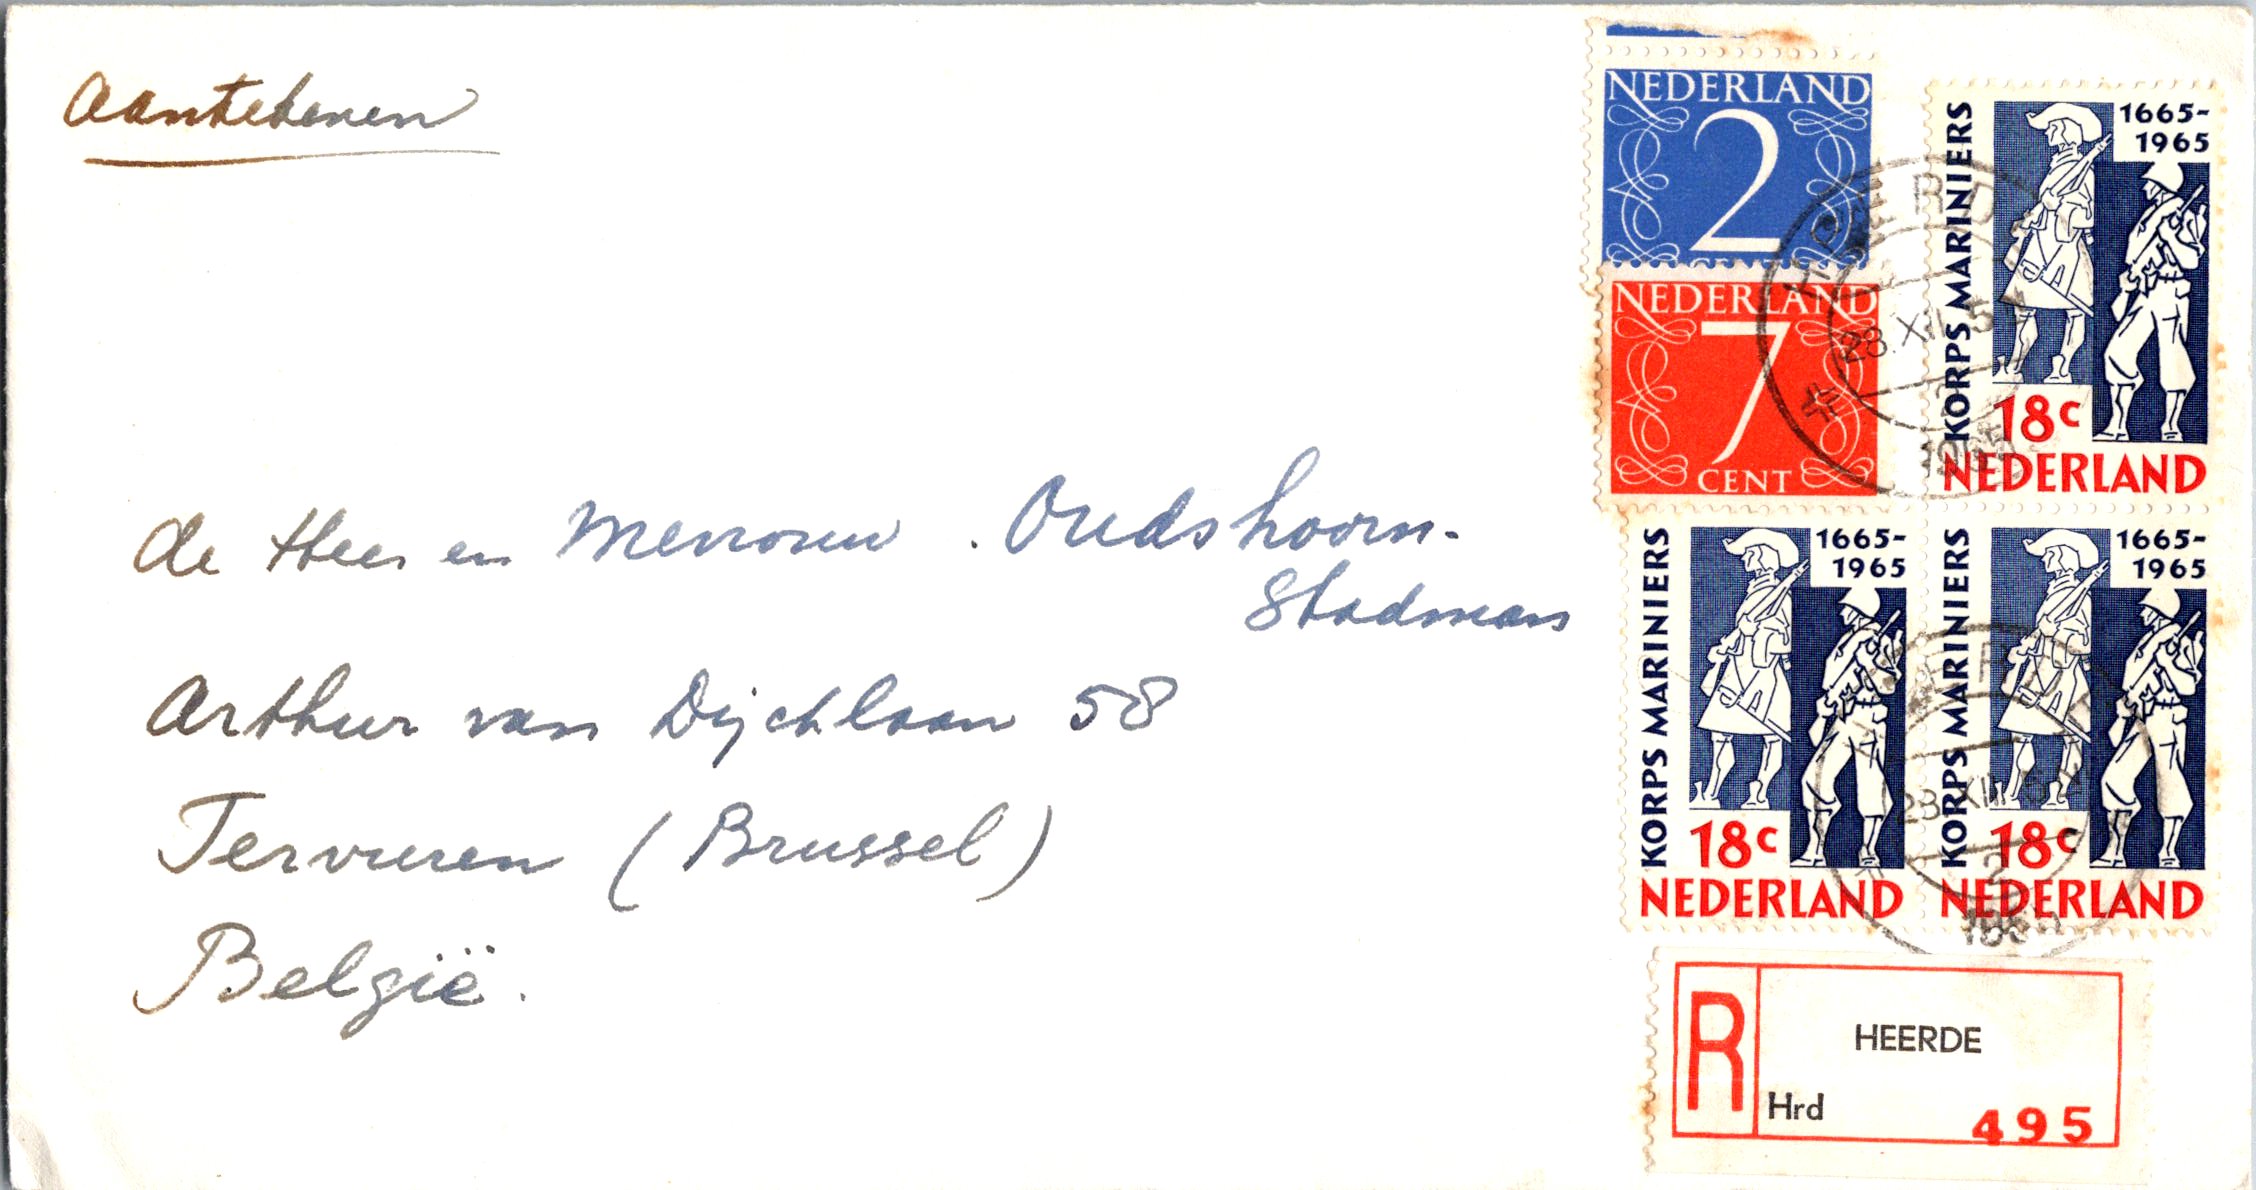 Aantekenen
de Heer en Mevrouw . Oudshoorn-
Stadman
Arthur van Dijcklaan 58
Tervuren (Brussel)
België.
NEDERLAND
2
NEDERLAND
7
CENT
KORPS MARINIERS
1665-
1965
18c
NEDERLAND
KORPS MARINIERS
1665-
1965
18c
NEDERLAND
KORPS MARINIERS
1665-
1965
18c
NEDERLAND
HEERDE
28.XII
1965
HEERDE
28.XII
R
HEERDE
Hrd
495